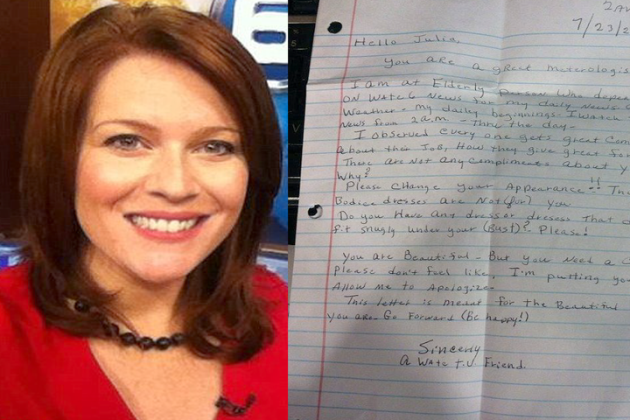 6
7/23/
Hello Julia,
You are a great meterologis
I am at Elderly person who depe
ON WAtc6 News for my daily News
Weather - my daily beginnings. I watch
News from 2a.m - Thru the day-
I observed every one gets great Com
about their Job, How they give great
There are Not any Compliments about Y
Why?
Please Change your Appearance!! Th
Bodice dresses are Not (for) you
Do you Have any dresses or dresses that d
fit snugly under your (Bust)? Please!
You are Beautiful - But you Need a
please don't feel like, I'm putting you
Allow me to Apologize-
This letter is meant for the Beautiful
you are. Go Forward (Be happy!)
Sincerly
a WAtc T.V Friend.